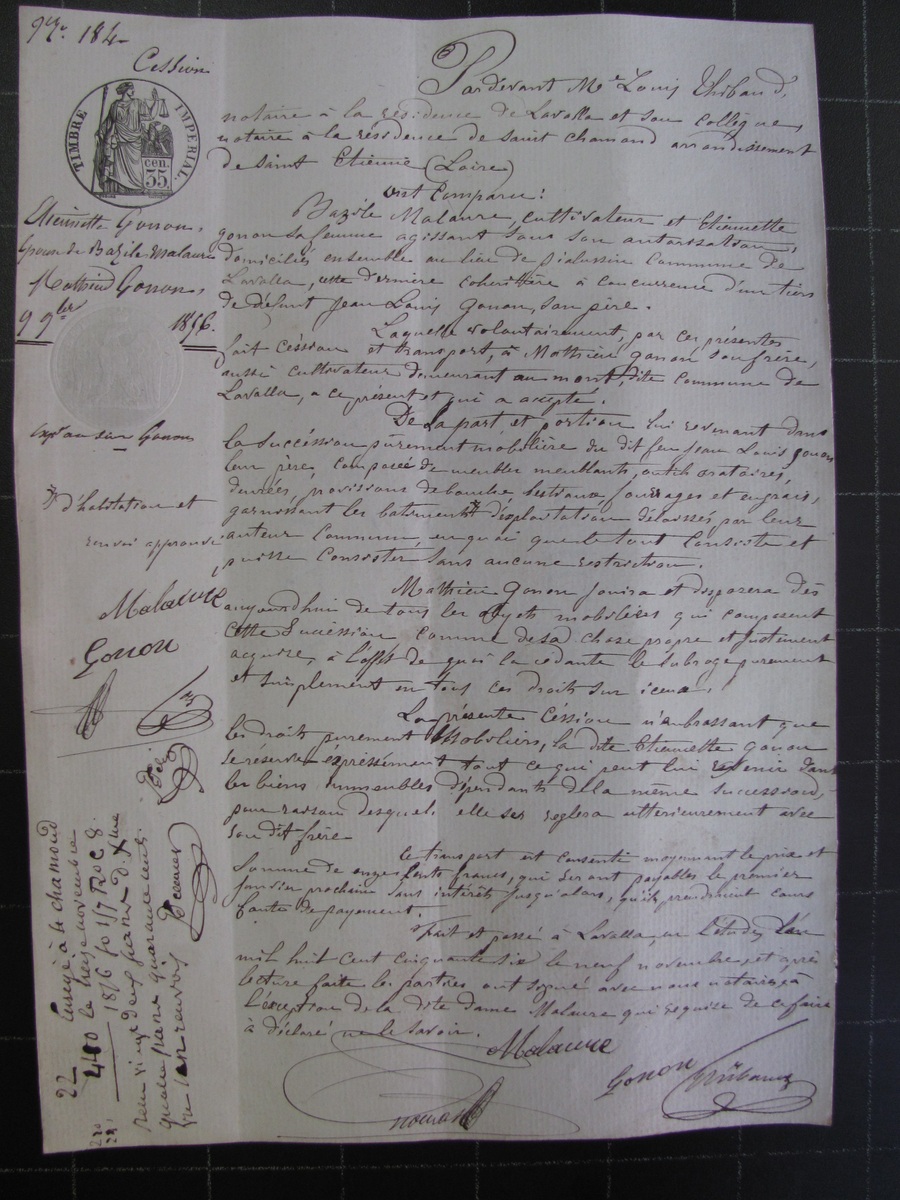 Cession
TIMBRE IMPERIAL
55 cen.
Etiennette Gonon,
épouse de Bazile Malaure
Mathieu Gonon,
9 9bre 1856.
Pardevant Me Louis Thibaud,
notaire à la résidence de Lavalla et son collègue,
notaire à la résidence de Saint Chamond arrondissement
de Saint Etienne (Loire)
Ont Comparu:
Bazile Malaure, cultivateur et Etiennette
gonon sa femme agissant sous son autorisation,
domiciliés ensemble au lieu de commune de
Lavalla, cette dernière cohéritière à concurrence d'un tiers
de défunt Jean Louis gonon, son père.
Laquelle volontairement, par ces présentes
fait céssion et transport, à Mathieu gonon son frère,
aussi cultivateur demeurant au mont, dite commune de
Lavalla, a ce présent et qui a accepté.
De la part et portion lui revenant dans
la succéssion purement mobilière du dit feu Jean Louis gonon
leur père, composée de meubles meublants, outils aratoires,
denrées, provisions de bouche, bestiaux fourrages et engrais,
garnissant les batiments d'exploitation délaissés, par leur
auteur commun, en quoi que le tout consiste et
puisse consister sans aucune restriction.
d'habitation et
renvoi approuvé
Malaure
Gonon
Mathieu Gonon jouira et disposera dès
aujourd'hui de tous les objets mobiliers qui composent
cette succéssion comme de sa chose propre et justement
acquise, à l'effet de quoi la cédante le subroge purement
et simplement en tous ces droits sur iceux.
La présente céssion n'embrassant que
les droits purement Mobiliers, la dite Etiennette gonon
se réserve éxpressément tout ce qui peut lui revenir dans
les biens immeubles dépendants de la même succession,
pour raison desquels elle se reglera ultérieurement avec
son dit frère.
Ce transport est consenti moyennant le prix et
somme de onze cents francs, qui seront payables le premier
janvier prochain sans intérêts jusqu'alors, qu'ils prendraient cours
faute de payement.
Fait et passé à Lavalla, en l'étude, l'an
mil huit cent cinquante six le neuf novembre, et après
lecture faite les parties ont signé avec nous notaires à
l'éxception de la dite dame Malaure qui requise de ce faire
à déclaré ne le savoir.
Malaure
Gonon
Thibaud
22
Enregé à St chamond
le treize novembre
1856 fo 157 Ro C 8.
reçu vingt deux francs Dxme
quatre francs quarante cent.